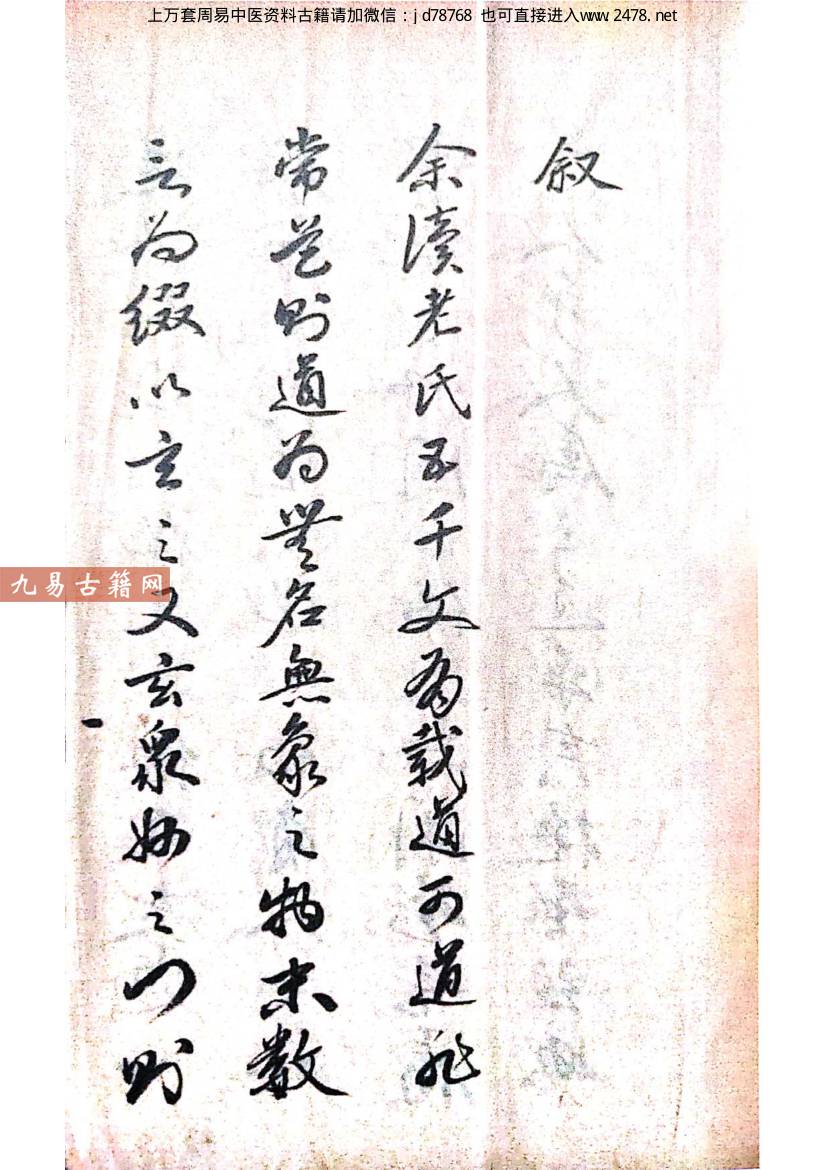 上万套周易中医资料古籍请加微信：jd78768 也可直接进入www.2478.net
叙
余读老氏五千文为载道可道非
常道则道为無名無象之物末数
言为缀以玄之又玄衆妙之门则
九易古籍网